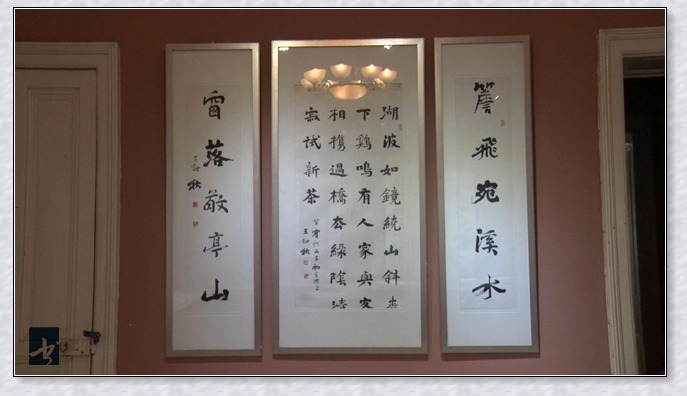 簷飛宛溪水
湖波如鏡繞山斜
下鷄鳴有人家與友
相携過橋去綠陰清
寂試新茶
窗落敬亭山